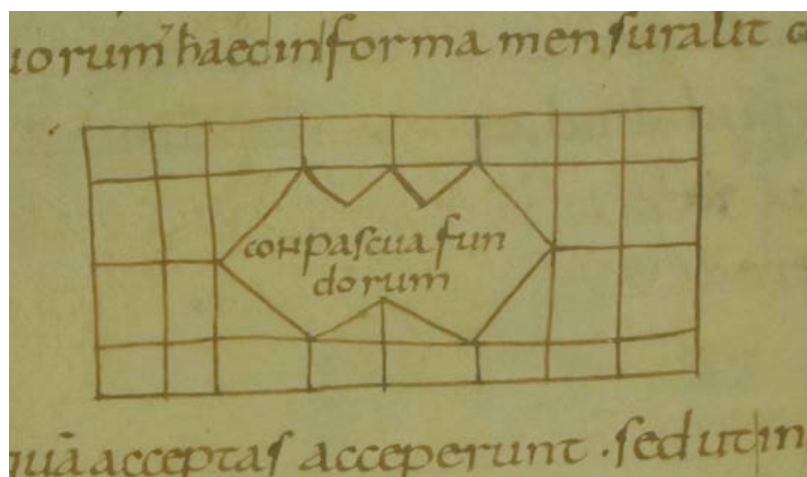 uorum haec in forma mensura lit
conpascua fun
dorum
acceptas acceperunt . sed ut in